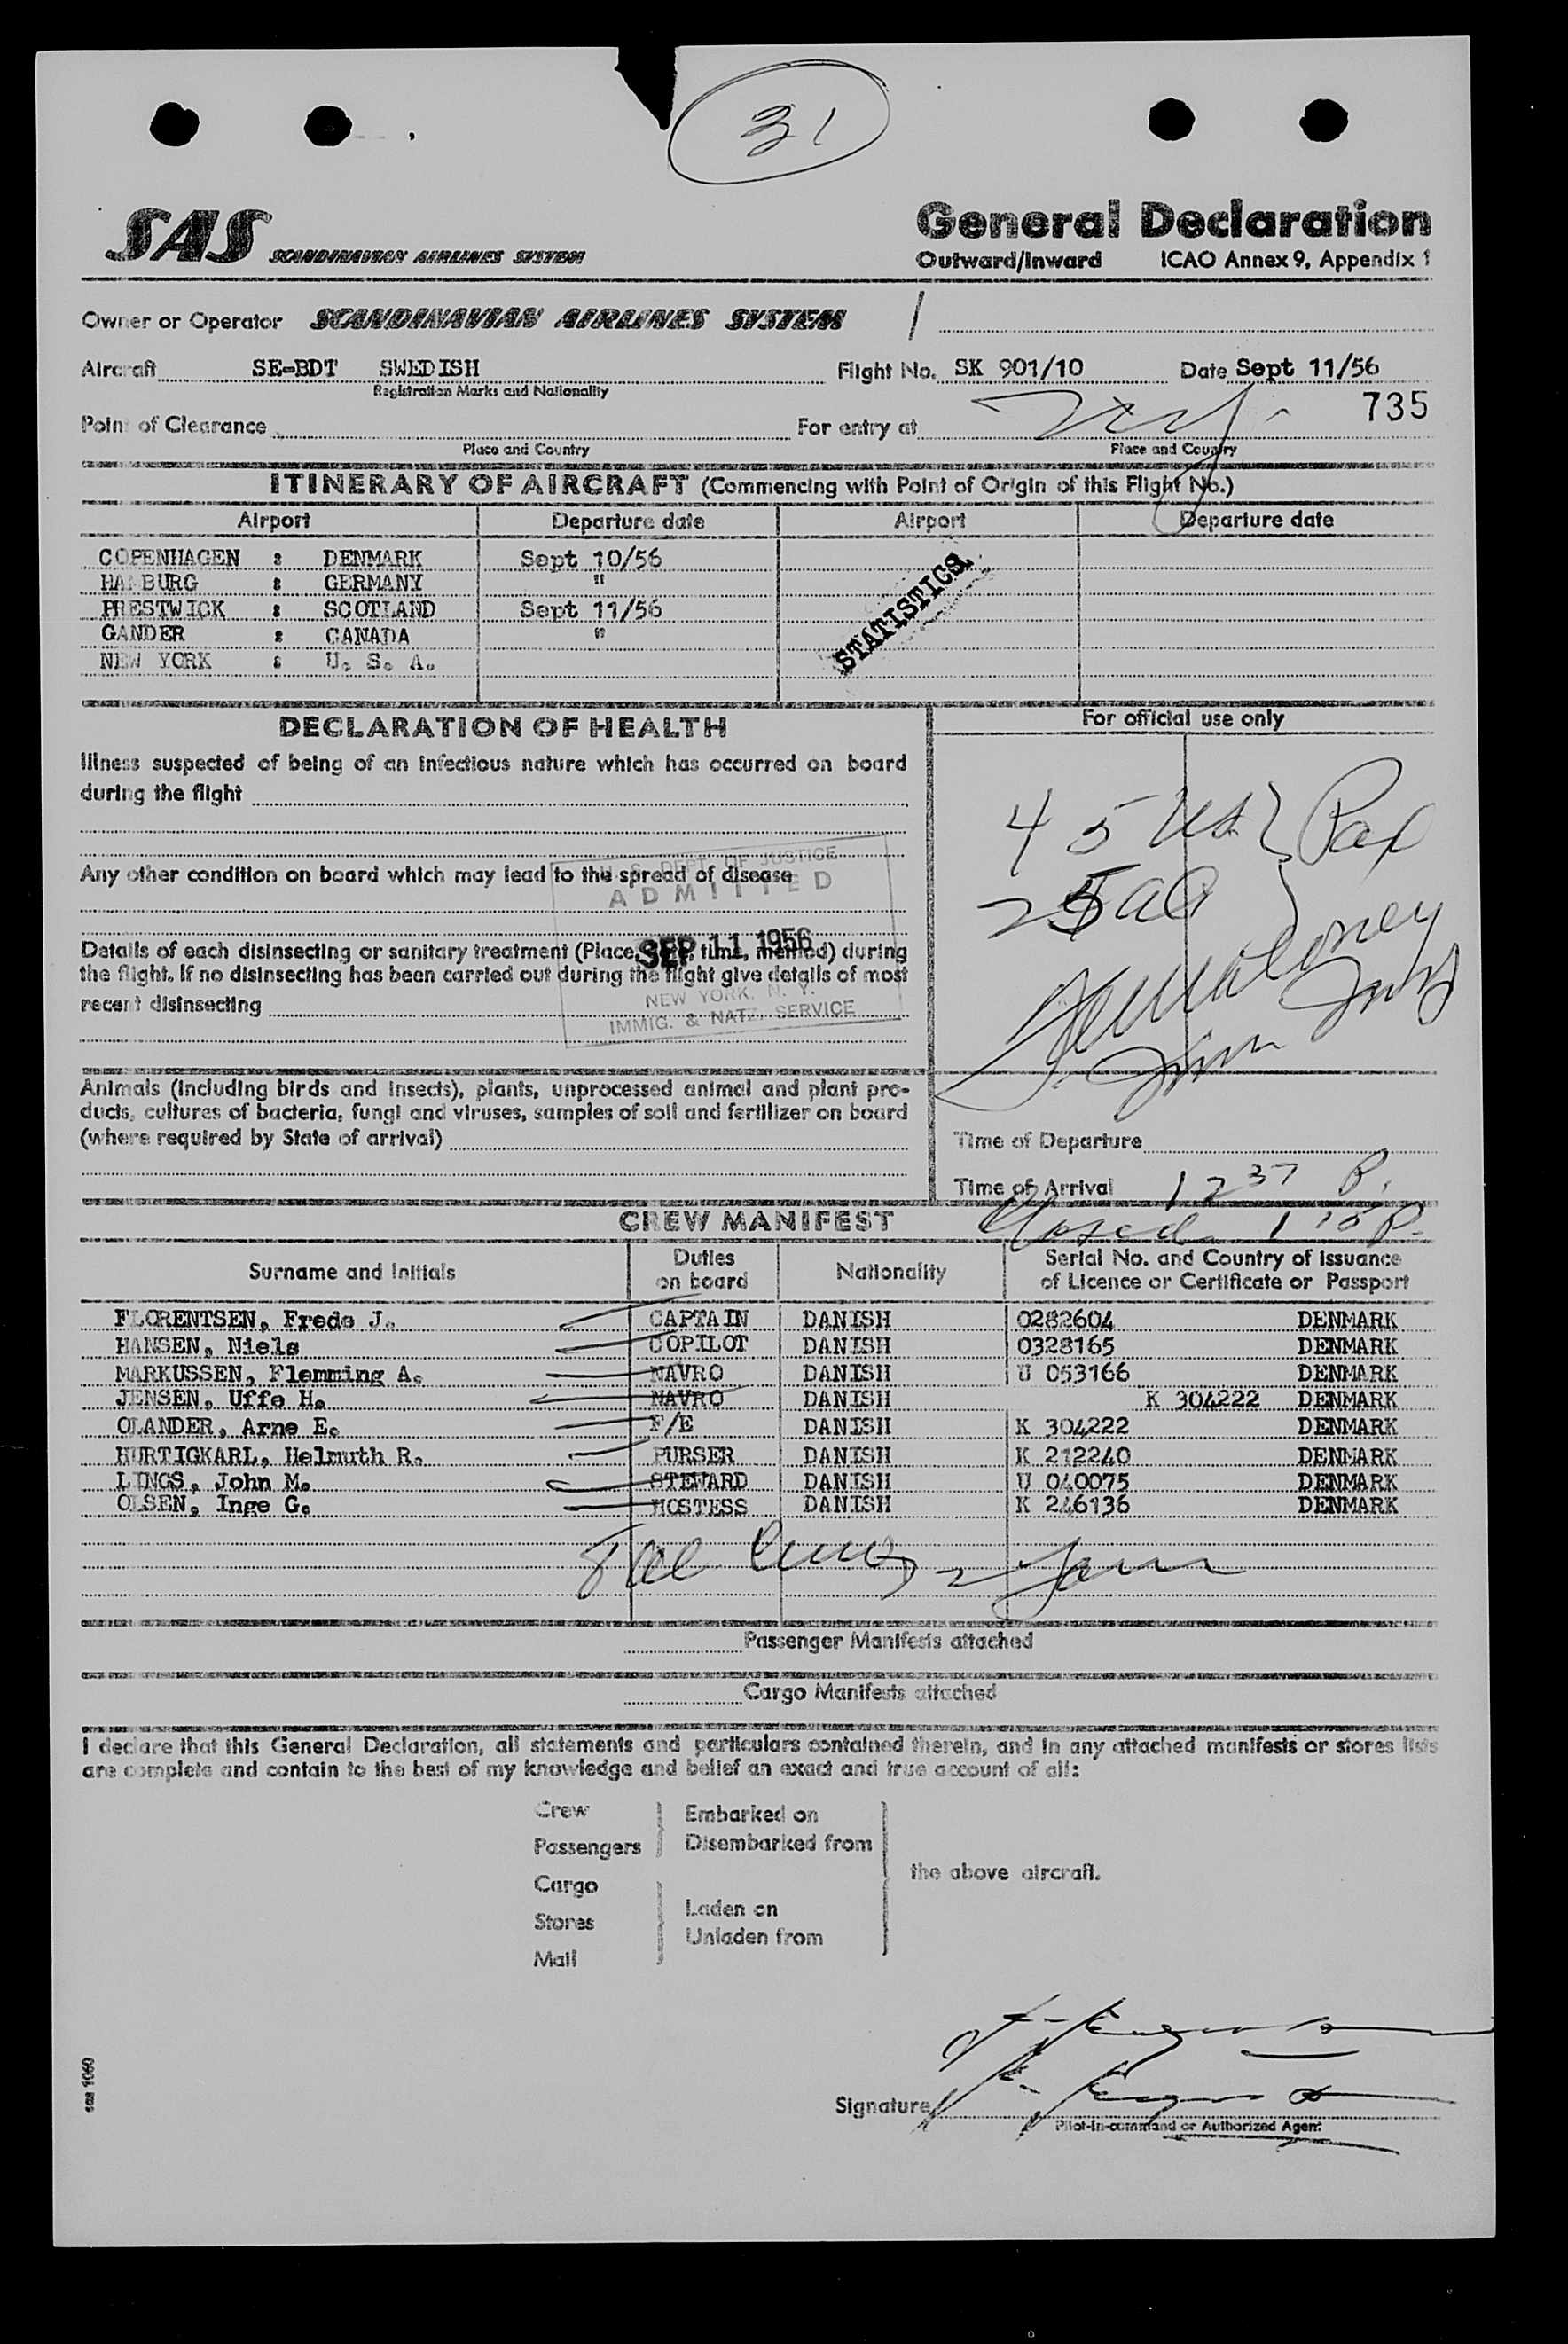 31
SAS SCANDINAVIAN AIRLINES SYSTEM
General Declaration
Outward/Inward ICAO Annex 9, Appendix 1
Owner or Operator SCANDINAVIAN AIRLINES SYSTEM
Aircraft SE-BDT SWEDISH Flight No. SK 901/10 Date Sept 11/56
Registration Marks and Nationality
735
Point of Clearance For entry at
Place and Country Place and Country
ITINERARY OF AIRCRAFT (Commencing with Point of Origin of this Flight No.)
Airport Departure date Airport Departure date
COPENHAGEN : DENMARK Sept 10/56
HAMBURG : GERMANY "
PRESTWICK : SCOTLAND Sept 11/56
GANDER : CANADA "
NEW YORK : U. S. A.
STATISTICS
DECLARATION OF HEALTH
For official use only
Illness suspected of being of an infectious nature which has occurred on board
during the flight
45 US } Pax
Any other condition on board which may lead to the spread of disease
U. S. DEPT. OF JUSTICE
ADMITTED
SEP 11 1956
NEW YORK, N. Y.
IMMIG. & NATZ. SERVICE
Details of each disinsecting or sanitary treatment (Place, time, method) during
the flight. If no disinsecting has been carried out during the flight give details of most
recent disinsecting
Animals (including birds and insects), plants, unprocessed animal and plant pro-
ducts, cultures of bacteria, fungi and viruses, samples of soil and fertilizer on board
(where required by State of arrival)
Time of Departure
Time of Arrival 12 37 P.
Closed 1 15 P.
CREW MANIFEST
Surname and Initials Duties on board Nationality Serial No. and Country of issuance of Licence or Certificate or Passport
FLORENTSEN, Frede J. CAPTAIN DANISH 0282604 DENMARK
HANSEN, Niels COPILOT DANISH 0328165 DENMARK
MARKUSSEN, Flemming A. NAVRO DANISH U 053166 DENMARK
JENSEN, Uffe H. NAVRO DANISH K 304222 DENMARK
OLANDER, Arne E. F/E DANISH K 304222 DENMARK
HURTIGKARL, Helmuth R. PURSER DANISH K 212240 DENMARK
LINGS, John M. STEWARD DANISH U 040075 DENMARK
OLSEN, Inge G. HOSTESS DANISH K 246136 DENMARK
Passenger Manifests attached
Cargo Manifests attached
I declare that this General Declaration, all statements and particulars contained therein, and in any attached manifests or stores lists
are complete and contain to the best of my knowledge and belief an exact and true account of all:
Crew
Passengers
Embarked on
Disembarked from
the above aircraft.
Cargo
Stores
Mail
Laden on
Unladen from
Signature
Pilot-in-command or Authorized Agent
sas 1060